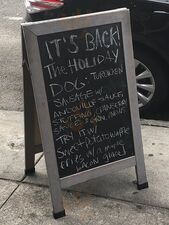 IT'S BACK!
The HOLIDAY
DOG: TURDUCKEN
SAUSAGE w/
ANDOUILLE SAUCE,
STUFFING, CRANBERRY
SAUCE &
TRY IT w/
SWEET POTATO WAFFLE
FRIES w/ a maple
bacon glaze!